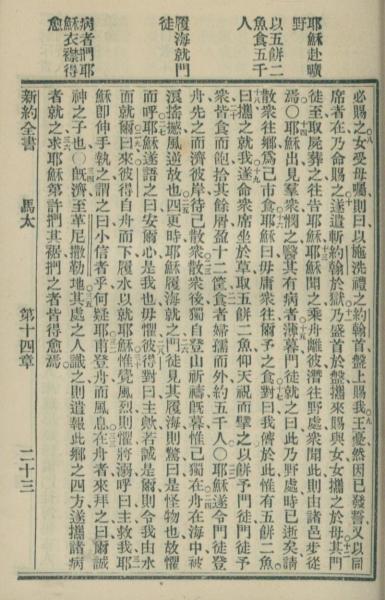 耶穌赴曠
野
以五餅二
魚食五千
人
履海就門
徒
病者捫耶
穌衣襟得
愈
必賜之女受母囑則曰以施洗禮之約翰首盤上賜我王憂然因已發誓又以同
席者在乃命賜之遂遣斬約翰於獄乃盛首於盤攜來賜與女女攜之於母其門
徒至取屍葬之往告耶穌耶穌聞之乘舟離彼潛往野處衆聞此則由諸邑步從
焉〇耶穌出見羣衆憫之醫其有病者薄暮門徒就之曰此乃野處時已逝矣請
散衆往鄉爲己市食耶穌曰毋庸衆往爾予之食對曰我儕於此惟有五餅二魚
曰攜之就我遂命衆席坐於草取五餅二魚仰天祝而擘之以餅予門徒門徒予
衆皆食而飽拾其餘屑盈十二筐食者婦孺而外約五千人〇耶穌遂令門徒登
舟先之而濟彼岸待己散衆散衆後獨自登山祈禱旣暮惟己獨在舟在海中被
浪搖撼風逆故也四更時耶穌履海就之門徒見其履海則驚曰是怪物也故懼
而呼耶穌遂語之曰安爾心是我也毋懼彼得對曰主歟若誠是爾則令我由水
面就爾曰來彼得自舟而下履水以就耶穌惟覺風烈則懼將溺呼曰主救我耶
穌卽伸手執之謂之曰小信者乎何疑耶甫登舟而風息在舟者來拜之曰爾誠
神之子也〇旣濟至革尼撒勒地其處之人識之則遣報此鄉之四方遂攜諸病
者就之求耶穌第許捫其裾捫之者皆得愈焉
新約全書 馬太 第十四章 二十三